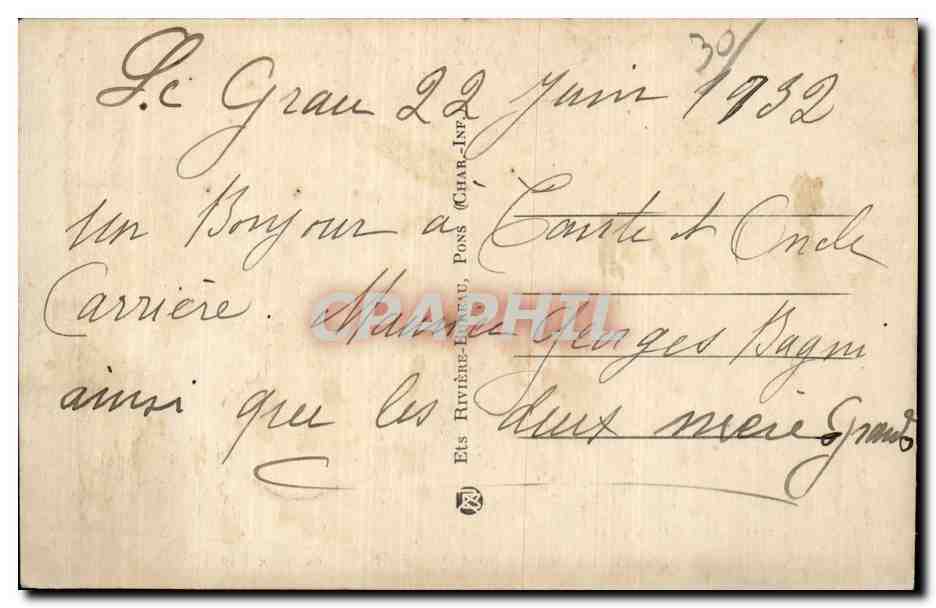 30/
Le Grau 22 Juin 1932
un Bonjour à Tante et Oncle
Carrière. Maurice Georges Bagni
ainsi que les deux mère Grands
Ets RIVIÈRE-BUREAU, PONS (CHAR.-INF.)
CPAPHIL